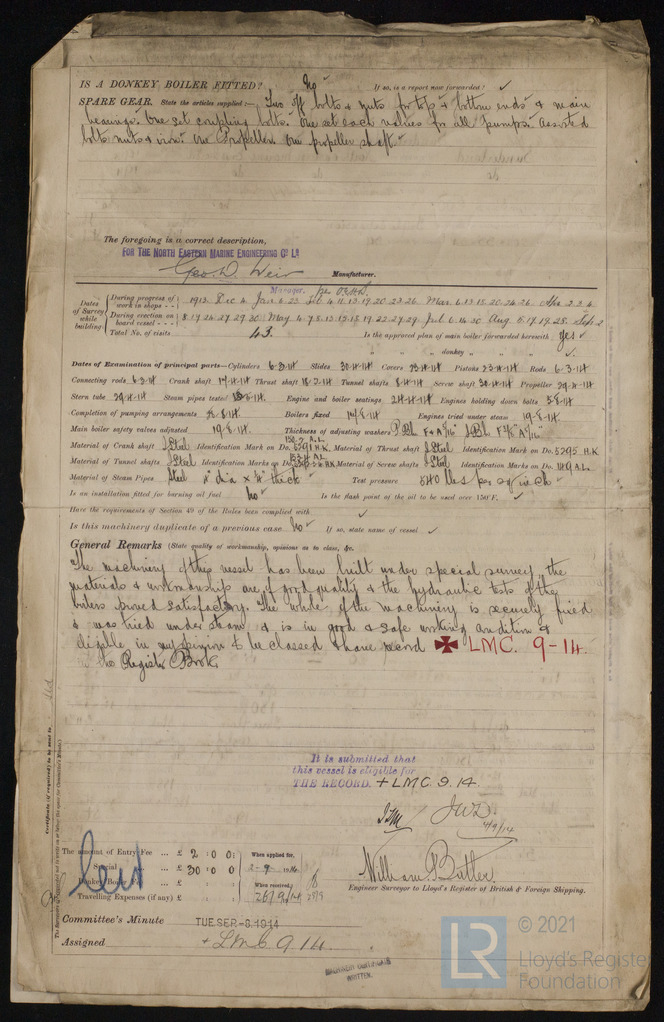 IS A DONKEY BOILER FITTED? No If so, is a report now forwarded? ✓
SPARE GEAR. State the articles supplied:— Two off bolts & nuts for top & bottom ends & main
bearings. One set coupling bolts. One set each valves for all pumps. Assorted
bolts nuts & iron. One Propeller. One propeller shaft.
The foregoing is a correct description,
FOR THE NORTH EASTERN MARINE ENGINEERING Co Ld
Geo. D. Weir Manufacturer.
Manager,
Dates of Survey while building
During progress of work in shops -- 1913 Dec 4 Jan 6 23 Feb 4 11 13 19 20 23 26 Mar 6 13 18 20 24 26 Apr 2 3 4
During erection on board vessel --- 8 17 24 27 29 30 May 4 7 8 13 15 18 19 22 27 29 Jul 6 14 30 Aug 5 17 19 28 Sep 2
Total No. of visits 43. Is the approved plan of main boiler forwarded herewith Yes ✓
" " " donkey " " " ✓
Dates of Examination of principal parts—Cylinders 6-3-14 Slides 30-4-14 Covers 23-4-14 Pistons 23-4-14 Rods 6-3-14
Connecting rods 6-3-14 Crank shaft 17-4-14 Thrust shaft 18-2-14 Tunnel shafts 8-4-14 Screw shaft 30-4-14 Propeller 29-4-14
Stern tube 29-4-14 Steam pipes tested Engine and boiler seatings 24-4-14 Engines holding down bolts 5-8-14
Completion of pumping arrangements 28-8-14 Boilers fixed 17-8-14 Engines tried under steam 19-8-14
Main boiler safety valves adjusted 19-8-14 Thickness of adjusting washers
Material of Crank shaft I Steel Identification Mark on Do. 5291 H.K. Material of Thrust shaft I Steel Identification Mark on Do. 5295 H.K
Material of Tunnel shafts I Steel Identification Marks on Do. Material of Screw shafts I Steel Identification Marks on Do. 1149 A.L.
Material of Steam Pipes Steel 4" dia × ¼" thick Test pressure 540 lbs per sq inch
Is an installation fitted for burning oil fuel No Is the flash point of the oil to be used over 150°F. ✓
Have the requirements of Section 49 of the Rules been complied with ✓
Is this machinery duplicate of a previous case No If so, state name of vessel ✓
General Remarks (State quality of workmanship, opinions as to class, &c.
The machinery of this vessel has been built under special survey, the
materials & workmanship are of good quality & the hydraulic tests of the
boilers proved satisfactory. The whole of the machinery is securely fixed
& was tried under steam & is in good & safe working condition &
eligible in my opinion to be classed & have record ✠ LMC. 9-14.
in the Register Book
It is submitted that
this vessel is eligible for
THE RECORD. + LMC. 9. 14
JWD
4/9/14
The amount of Entry Fee ... £ 2 : 0 : 0 : When applied for,
Special ... £ 30 : 0 : 0 2-9-1914
Donkey Boiler Fee ... £ : : When received,
Travelling Expenses (if any) £ : : 26/9/14
William Butler
Engineer Surveyor to Lloyd's Register of British & Foreign Shipping.
Committee's Minute TUE. SEP -8. 1914
Assigned + LMC 9 14.
MACHINERY CERTIFICATE
WRITTEN.
Certificate (if required) to be sent to
LR © 2021
Lloyd's Register
Foundation